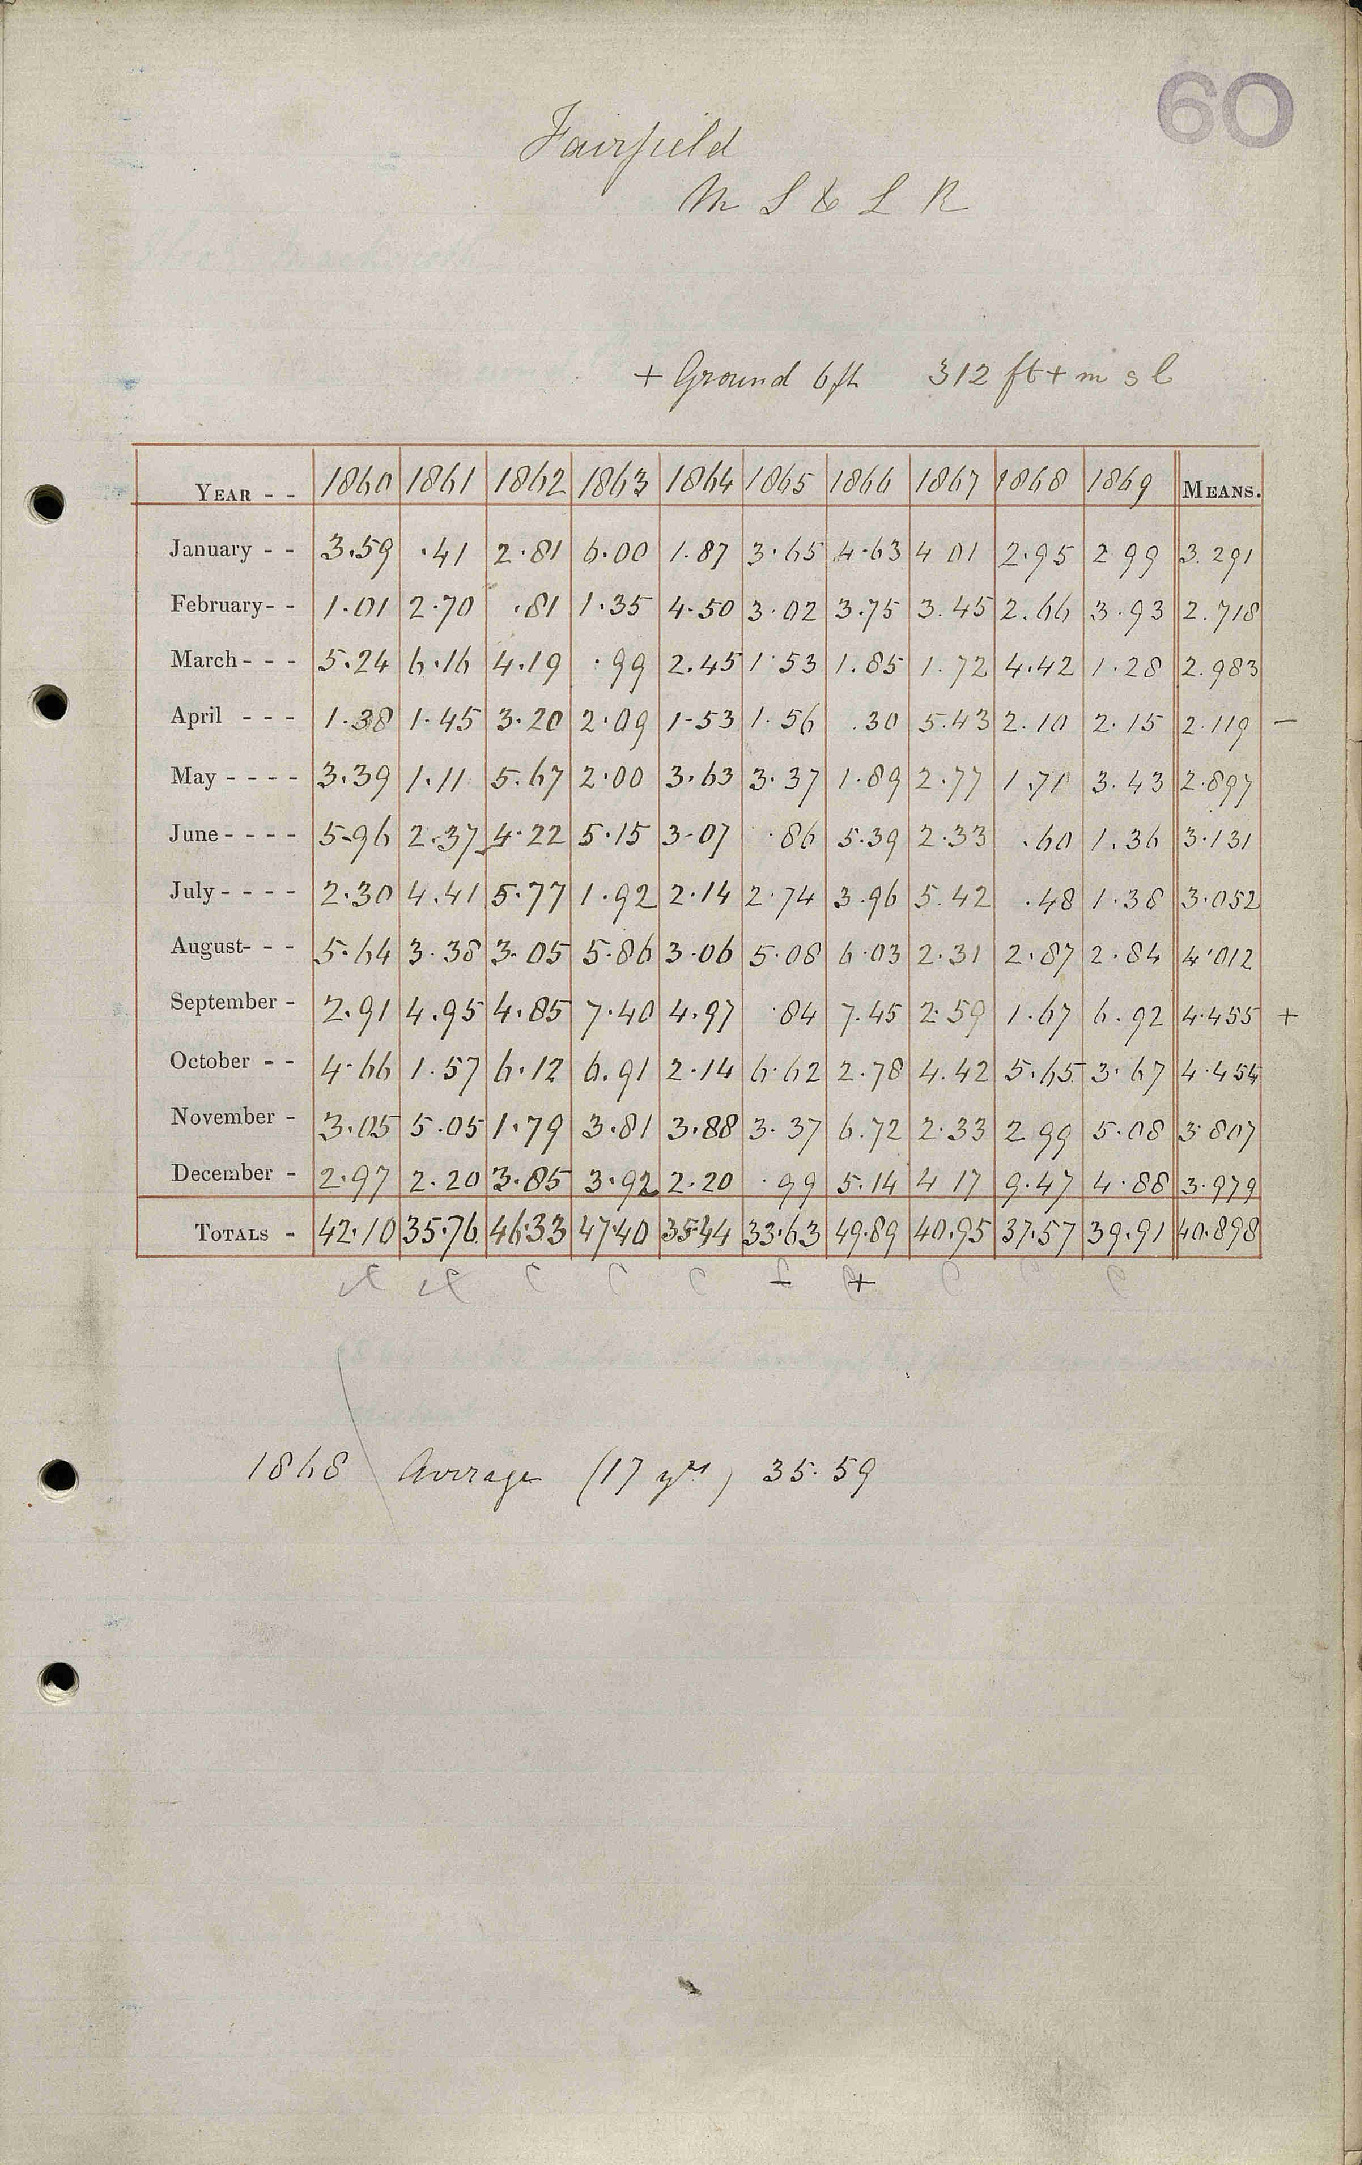 60
Fairfield
M S & L R
+ Ground 6ft 312 ft + m s l
YEAR - - 1860 1861 1862 1863 1864 1865 1866 1867 1868 1869 MEANS.
January - - 3.59 .41 2.81 6.00 1.87 3.65 4.63 4 01 2.95 2 99 3.291
February- - 1.01 2.70 .81 1.35 4.50 3.02 3.75 3.45 2.66 3.93 2.718
March - - - 5.24 6.16 4.19 .99 2.45 1.53 1.85 1.72 4.42 1.28 2.983
April - - - 1.38 1.45 3.20 2.09 1.53 1.56 .30 5.43 2.10 2.15 2.119 —
May - - - - 3.39 1.11 5.67 2.00 3.63 3.37 1.89 2.77 1.71 3.43 2.897
June - - - - 5.96 2.37 4.22 5.15 3.07 .86 5.39 2.33 .60 1.36 3.131
July - - - - 2.30 4.41 5.77 1.92 2.14 2.74 3.96 5.42 .48 1.38 3.052
August- - - 5.64 3.38 3.05 5.86 3.06 5.08 6.03 2.31 2.87 2.84 4.012
September - 2.91 4.95 4.85 7.40 4.97 .84 7.45 2.59 1.67 6.92 4.455 +
October - - 4.66 1.57 6.12 6.91 2.14 6.62 2.78 4.42 5.65 3.67 4.454
November - 3.05 5.05 1.79 3.81 3.88 3.37 6.72 2.33 2 99 5.08 3.807
December - 2.97 2.20 3.85 3.92 2.20 .99 5.14 4 17 9.47 4.88 3.979
TOTALS - 42.10 35.76 46.33 47.40 35.44 33.63 49.89 40.95 37.57 39.91 40.898
— +
1868 Average (17 yrs) 35.59